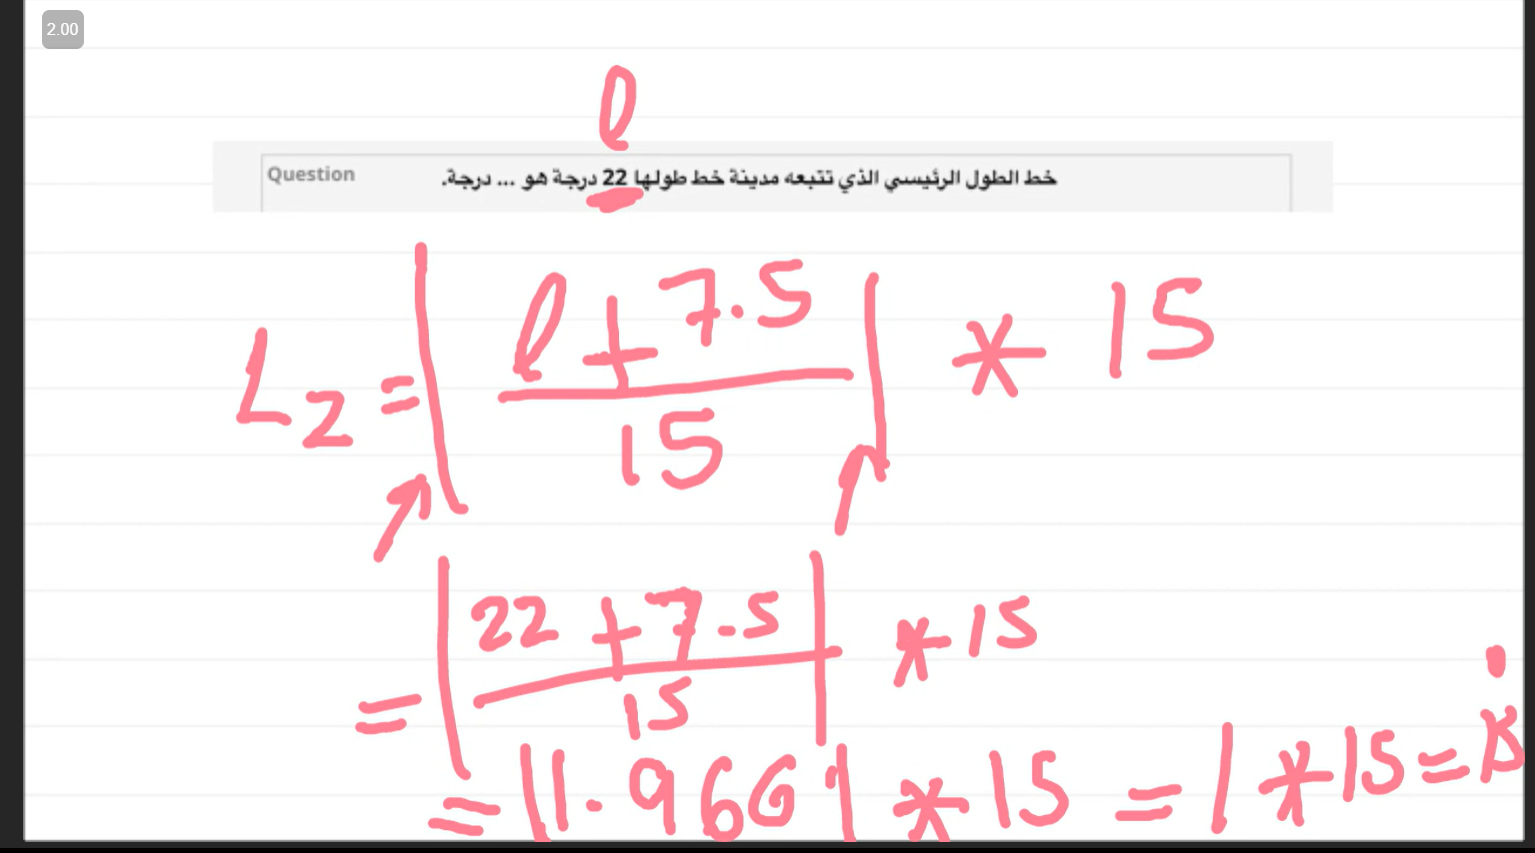 2.00
l
Question
خط الطول الرئيسي الذي تتبعه مدينة خط طولها 22 درجة هو ... درجة.
L2 = | l + 7.5 / 15 | * 15
= | 22 + 7.5 / 15 | * 15
= | 1.966 | * 15 = 1 * 15 = 15